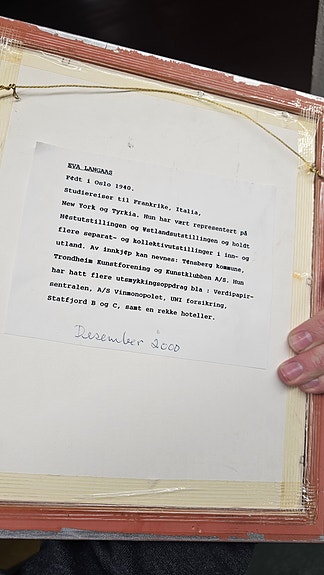 EVA LANGAAS
Født i Oslo 1940.
Studiereiser til Frankrike, Italia,
New York og Tyrkia. Hun har vært representert på
Høstutstillingen og Østlandsutstillingen og holdt
flere separat- og kollektivutstillinger i inn- og
utland. Av innkjøp kan nevnes: Tønsberg kommune,
Trondheim Kunstforening og Kunstklubben A/S. Hun
har hatt flere utsmykkingsoppdrag bla : Verdipapir-
sentralen, A/S Vinmonopolet, UNI forsikring,
Statfjord B og C, samt en rekke hoteller.
Desember 2000